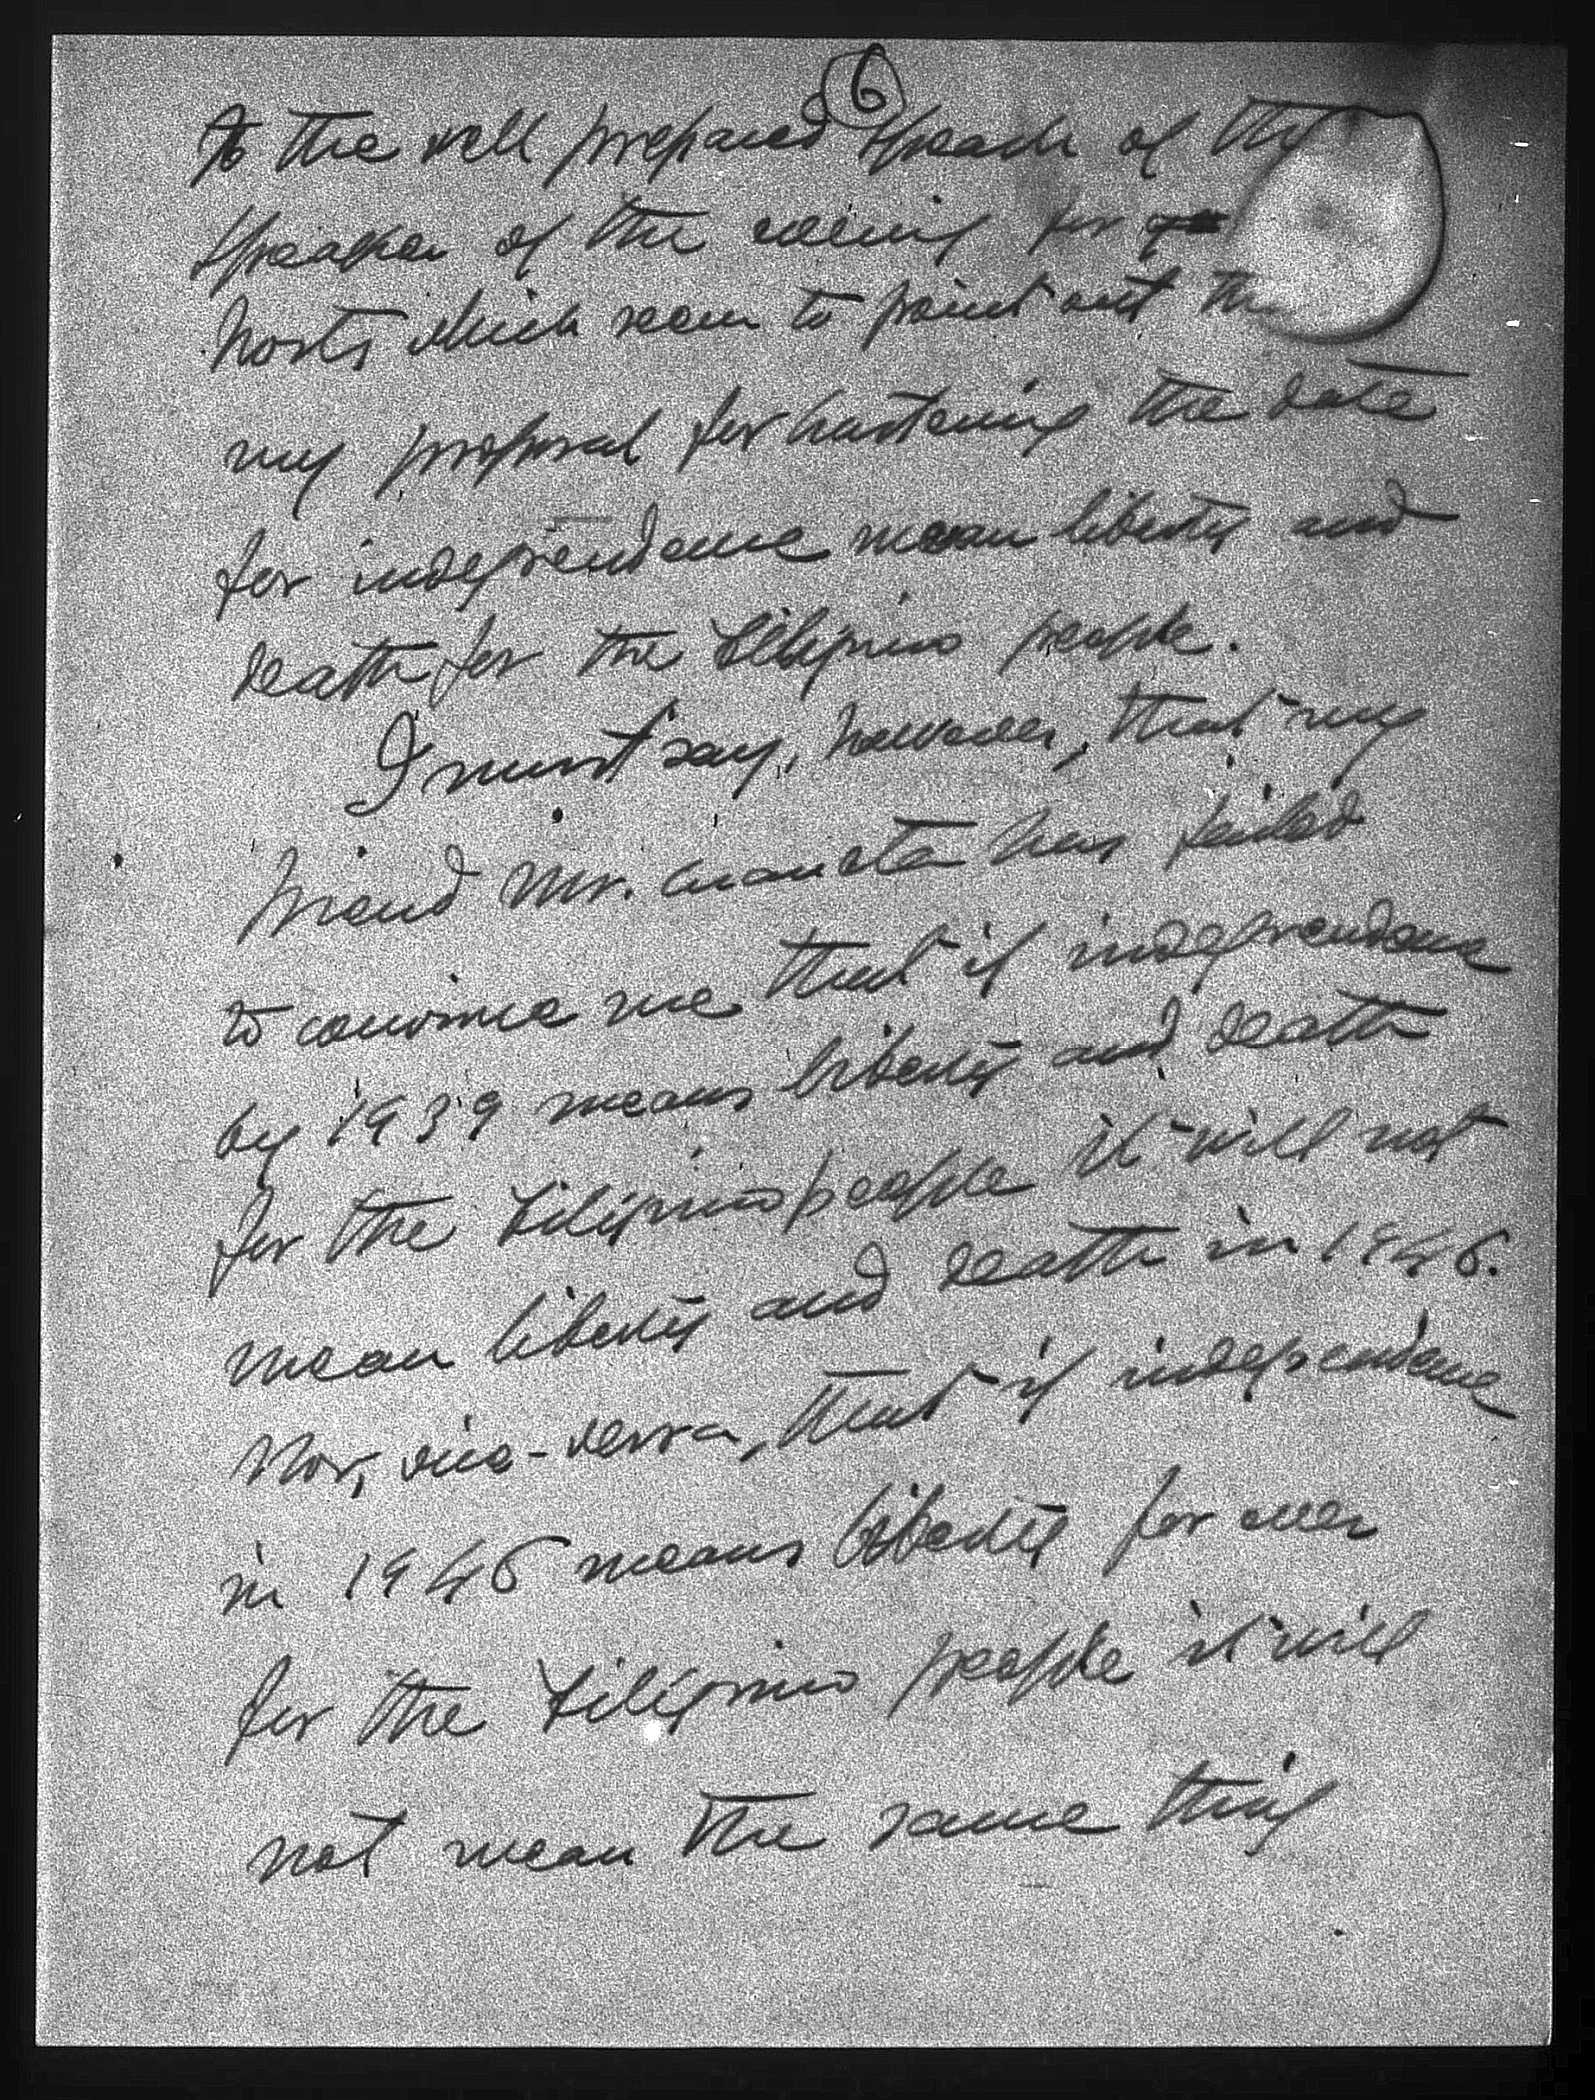 6
to the well prepared speech of the
speaker of the evening for
hosts which seem to point out
my proposal for hastening the date
for independence mean liberty and
death for the Filipino people.
I must say, however, that my
friend Mr. has failed
to convince me that if independence
by 1939 means liberty and death
for the Filipino people it will not
mean liberty and death in 1946.
Nor, vice-versa, that if independence
in 1946 means liberty for ever
for the Filipino people it will
not mean the same thing